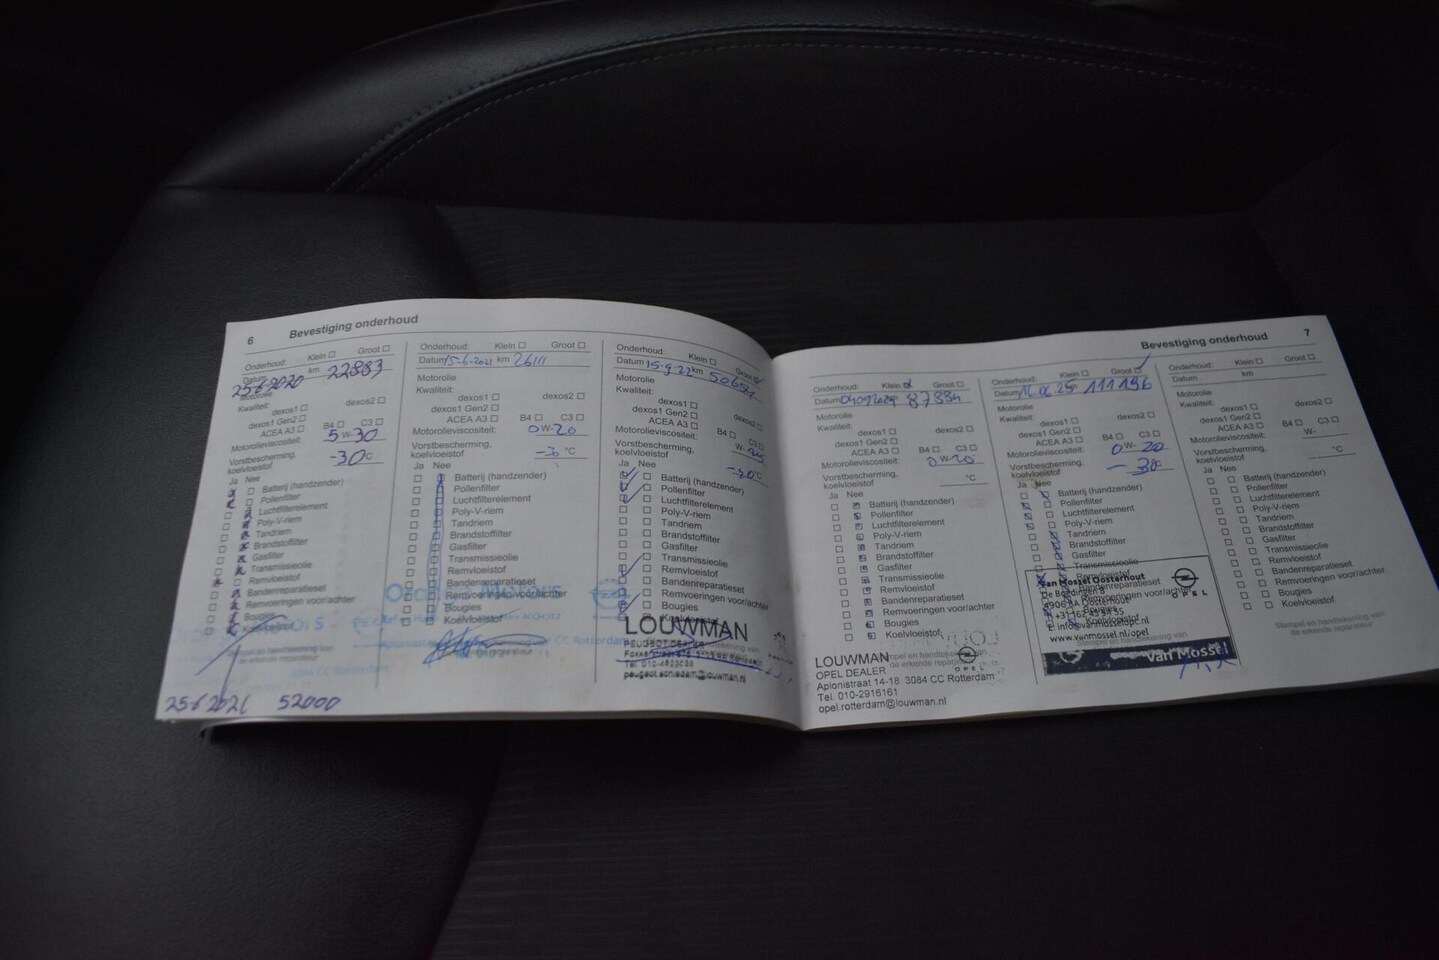 6
Bevestiging onderhoud
Onderhoud: Klein Groot
Datum km
25-6-2020 22883
Motorolie
Kwaliteit:
dexos1 dexos2
dexos1 Gen2
ACEA A3 B4 C3
Motorolieviscositeit: 5 W-30
Vorstbescherming,
koelvloeistof -30°C
Ja Nee
Batterij (handzender)
Pollenfilter
Luchtfilterelement
Poly-V-riem
Tandriem
Brandstoffilter
Gasfilter
Transmissieolie
Remvloeistof
Bandenreparatieset
Remvoeringen voor/achter
Bougies
Koelvloeistof
Stempel en handtekening van
de erkende reparateur
52000
Onderhoud: Klein Groot
Datum 15-6-2021 km 26111
Motorolie
Kwaliteit:
dexos1 dexos2
dexos1 Gen2
ACEA A3 B4 C3
Motorolieviscositeit: 0 W-20
Vorstbescherming,
koelvloeistof °C
Ja Nee
Batterij (handzender)
Pollenfilter
Luchtfilterelement
Poly-V-riem
Tandriem
Brandstoffilter
Gasfilter
Transmissieolie
Remvloeistof
Bandenreparatieset
Remvoeringen voor/achter
Bougies
Koelvloeistof
Onderhoud: Klein Groot
Datum 15-9-22 km
Motorolie
Kwaliteit:
dexos1 dexos2
dexos1 Gen2
ACEA A3 B4 C3
Motorolieviscositeit: W-
Vorstbescherming,
koelvloeistof °C
Ja Nee
Batterij (handzender)
Pollenfilter
Luchtfilterelement
Poly-V-riem
Tandriem
Brandstoffilter
Gasfilter
Transmissieolie
Remvloeistof
Bandenreparatieset
Remvoeringen voor/achter
Bougies
LOUWMAN
PEUGEOT DEALER
Bevestiging onderhoud
7
Onderhoud: Klein Groot
Datum 87334
Motorolie
Kwaliteit:
dexos1 dexos2
dexos1 Gen2
ACEA A3 B4 C3
Motorolieviscositeit: 0 W-20
Vorstbescherming,
koelvloeistof °C
Ja Nee
Batterij (handzender)
Pollenfilter
Luchtfilterelement
Poly-V-riem
Tandriem
Brandstoffilter
Gasfilter
Transmissieolie
Remvloeistof
Bandenreparatieset
Remvoeringen voor/achter
Bougies
Koelvloeistof
LOUWMAN
OPEL DEALER
Aplonistraat 14-18 3084 CC Rotterdam
Tel. 010-2916161
opel.rotterdam@louwman.nl
OPEL
Onderhoud: Klein Groot
Datum 111196
Motorolie
Kwaliteit:
dexos1 dexos2
dexos1 Gen2
ACEA A3 B4 C3
Motorolieviscositeit: 0 W-20
Vorstbescherming,
koelvloeistof -30°C
Ja Nee
Batterij (handzender)
Pollenfilter
Luchtfilterelement
Poly-V-riem
Tandriem
Brandstoffilter
Gasfilter
Transmissieolie
Remvloeistof
Bandenreparatieset
Remvoeringen voor/achter
Bougies
Koelvloeistof
Van Mossel Oosterhout
OPEL
www.vanmossel.nl/opel
Van Mossel
Onderhoud: Klein Groot
Datum km
Motorolie
Kwaliteit:
dexos1 dexos2
dexos1 Gen2
ACEA A3 B4 C3
Motorolieviscositeit: W-
Vorstbescherming,
koelvloeistof °C
Ja Nee
Batterij (handzender)
Pollenfilter
Luchtfilterelement
Poly-V-riem
Tandriem
Brandstoffilter
Gasfilter
Transmissieolie
Remvloeistof
Bandenreparatieset
Remvoeringen voor/achter
Bougies
Koelvloeistof
Stempel en handtekening van
de erkende reparateur